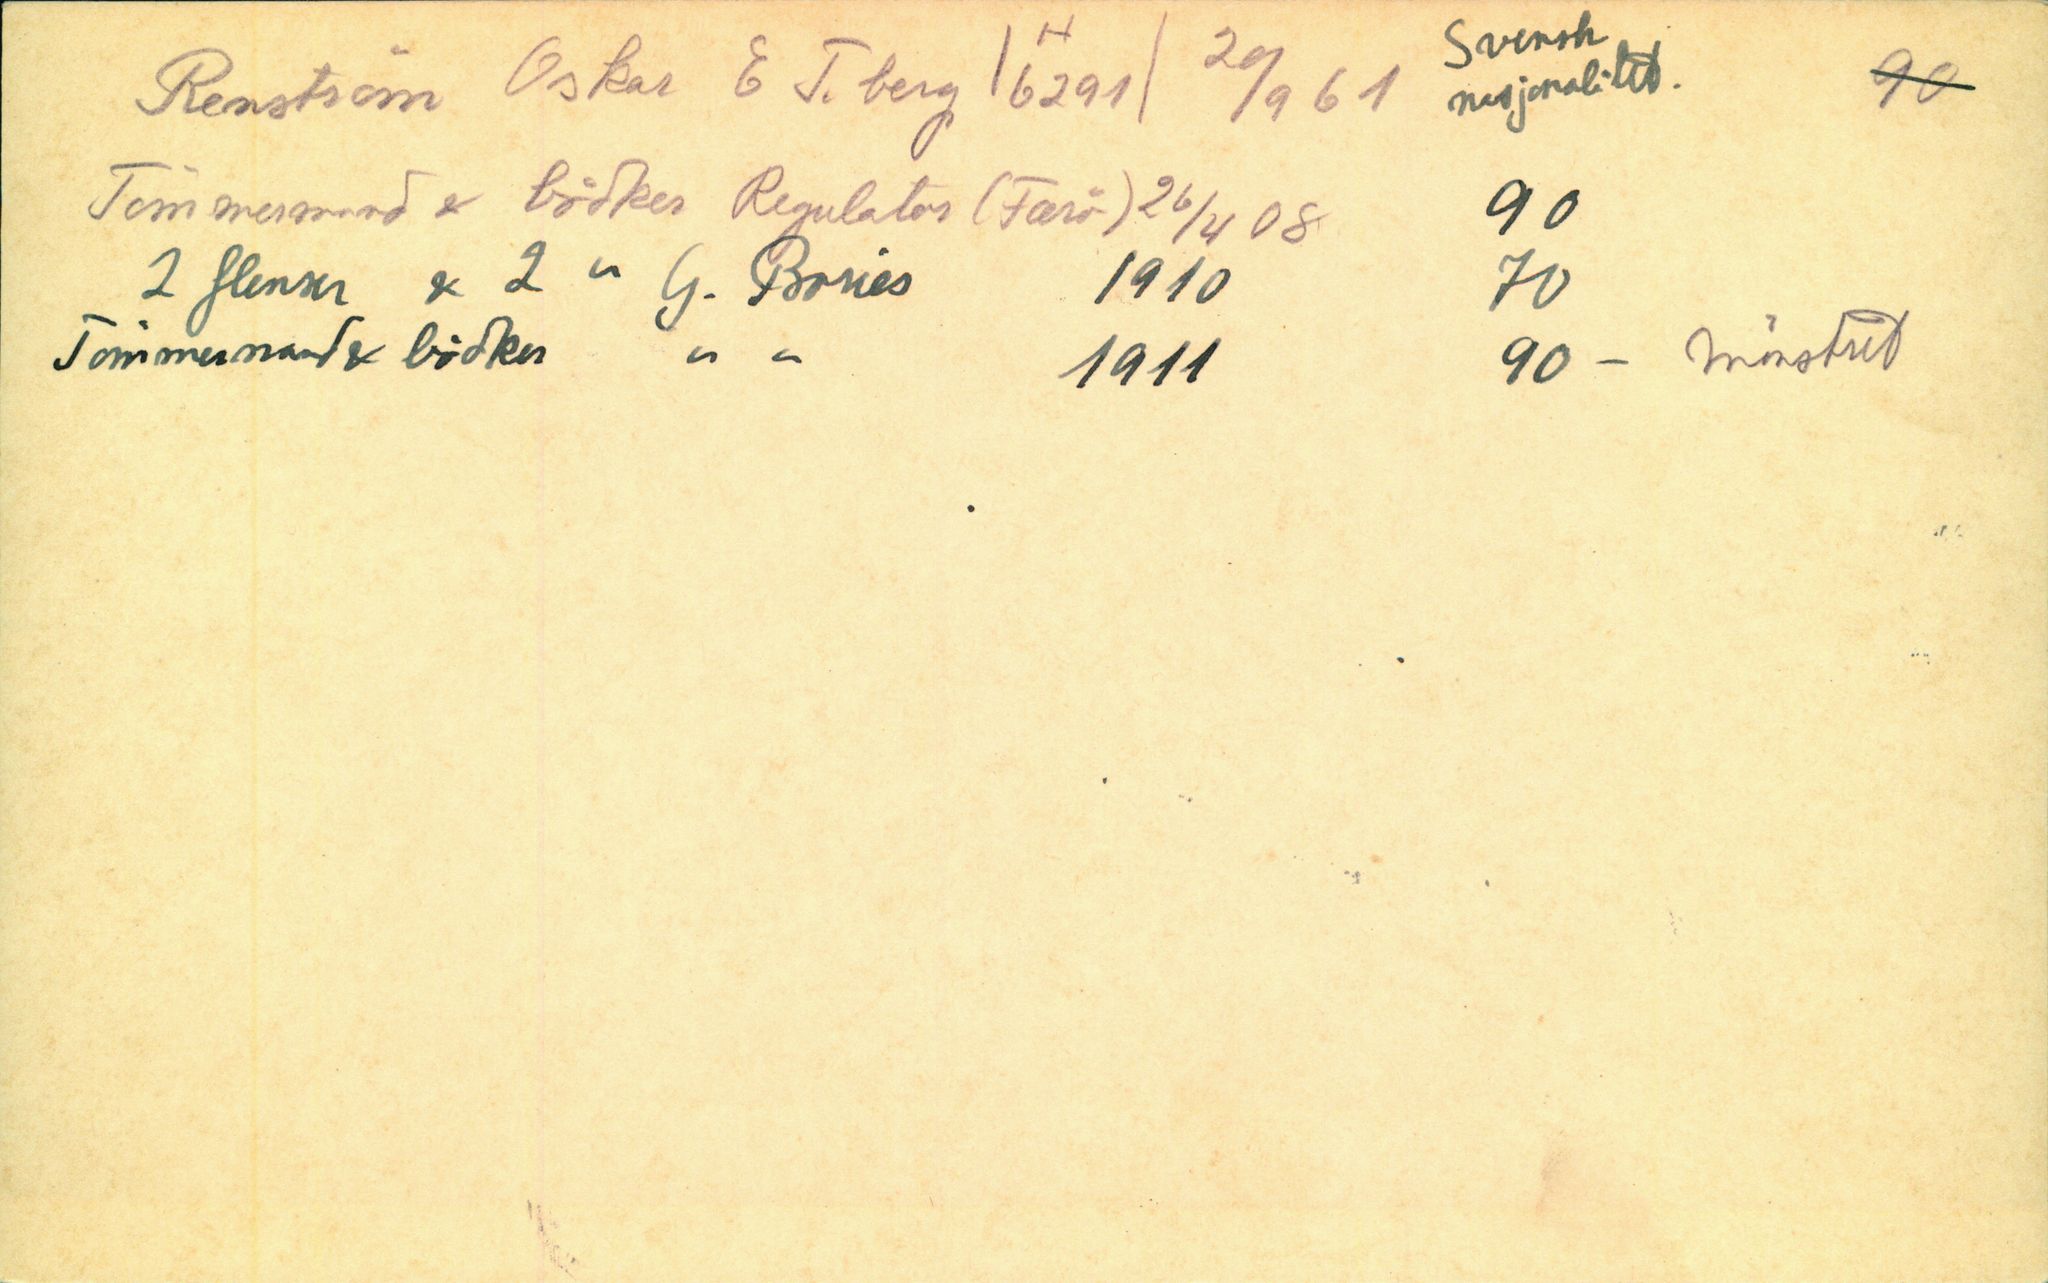 Renström Oskar E T.berg |H 6291| 29/9 61 Svensk nasjonalitet. 90
Tömmermand & bödker Regulator (Færö) 26/4 08 90
2 flenser & 2 " G. Bories 1910 70
Tömmermand & bödker " " 1911 90 - Mönstret